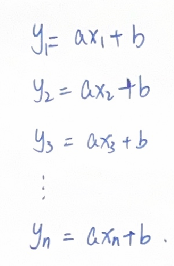 y₁ = ax₁ + b
y₂ = ax₂ + b
y₃ = ax₃ + b
⋮
yₙ = axₙ + b .